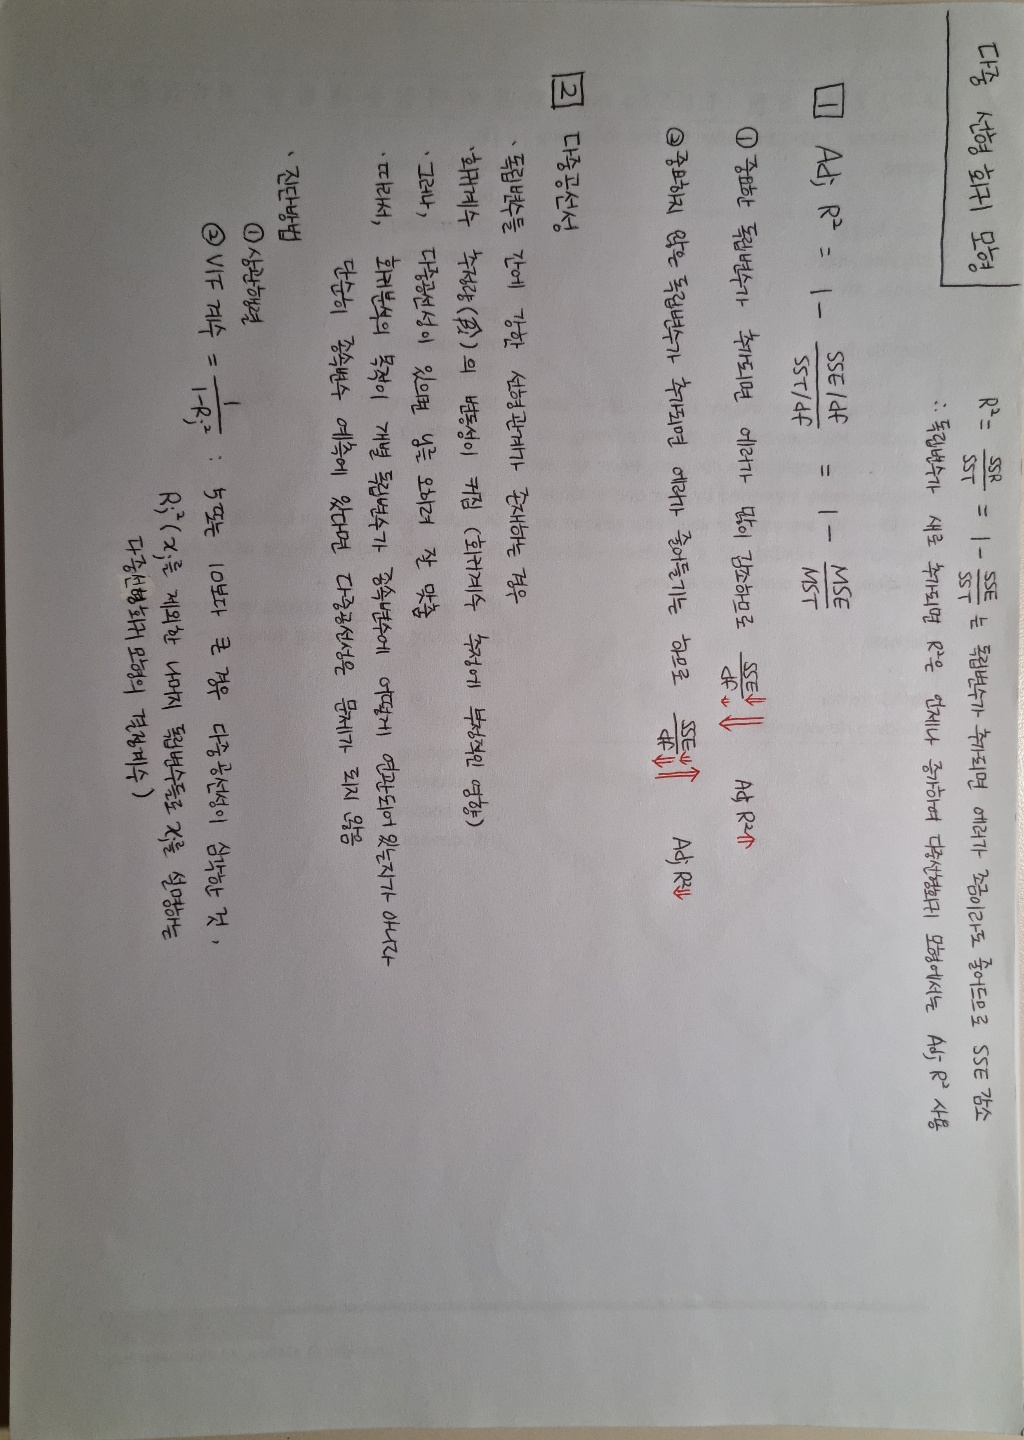 다중 선형 회귀 모형
R² = SSR/SST = 1 - SSE/SST 는 독립변수가 추가되면 에러가 조금이라도 줄어드므로 SSE 감소
∴ 독립변수가 새로 추가되면 R²은 언제나 증가하여 다중선형회귀 모형에서는 Adj R² 사용
1 Adj R² = 1 - (SSE/df)/(SST/df) = 1 - MSE/MST
① 중요한 독립변수가 추가되면 에러가 많이 감소하므로 SSE⇓/df↓ ⇓ Adj R²⇑
② 중요하지 않은 독립변수가 추가되면 에러가 줄어들기는 하므로 SSE↓/df⇓ ⇑ Adj R²⇓
2 다중공선성
· 독립변수들 간에 강한 선형관계가 존재하는 경우
· 회귀계수 추정량(β̂ᵢ)의 변동성이 커짐 (회귀계수 추정에 부정적인 영향)
· 그러나, 다중공선성이 있으면 ŷᵢ를 오히려 잘 맞춤
· 따라서, 회귀분석의 목적이 개별 독립변수가 종속변수에 어떻게 연관되어 있는지가 아니라
단순히 종속변수 예측에 있다면 다중공선성은 문제가 되지 않음
· 진단방법
① 상관행렬
② VIF 계수 = 1/(1-Rⱼ²) : 5또는 10보다 큰 경우 다중공선성이 심각한 것,
Rⱼ²(xⱼ를 제외한 나머지 독립변수들로 xⱼ를 설명하는
다중선형회귀 모형의 결정계수)